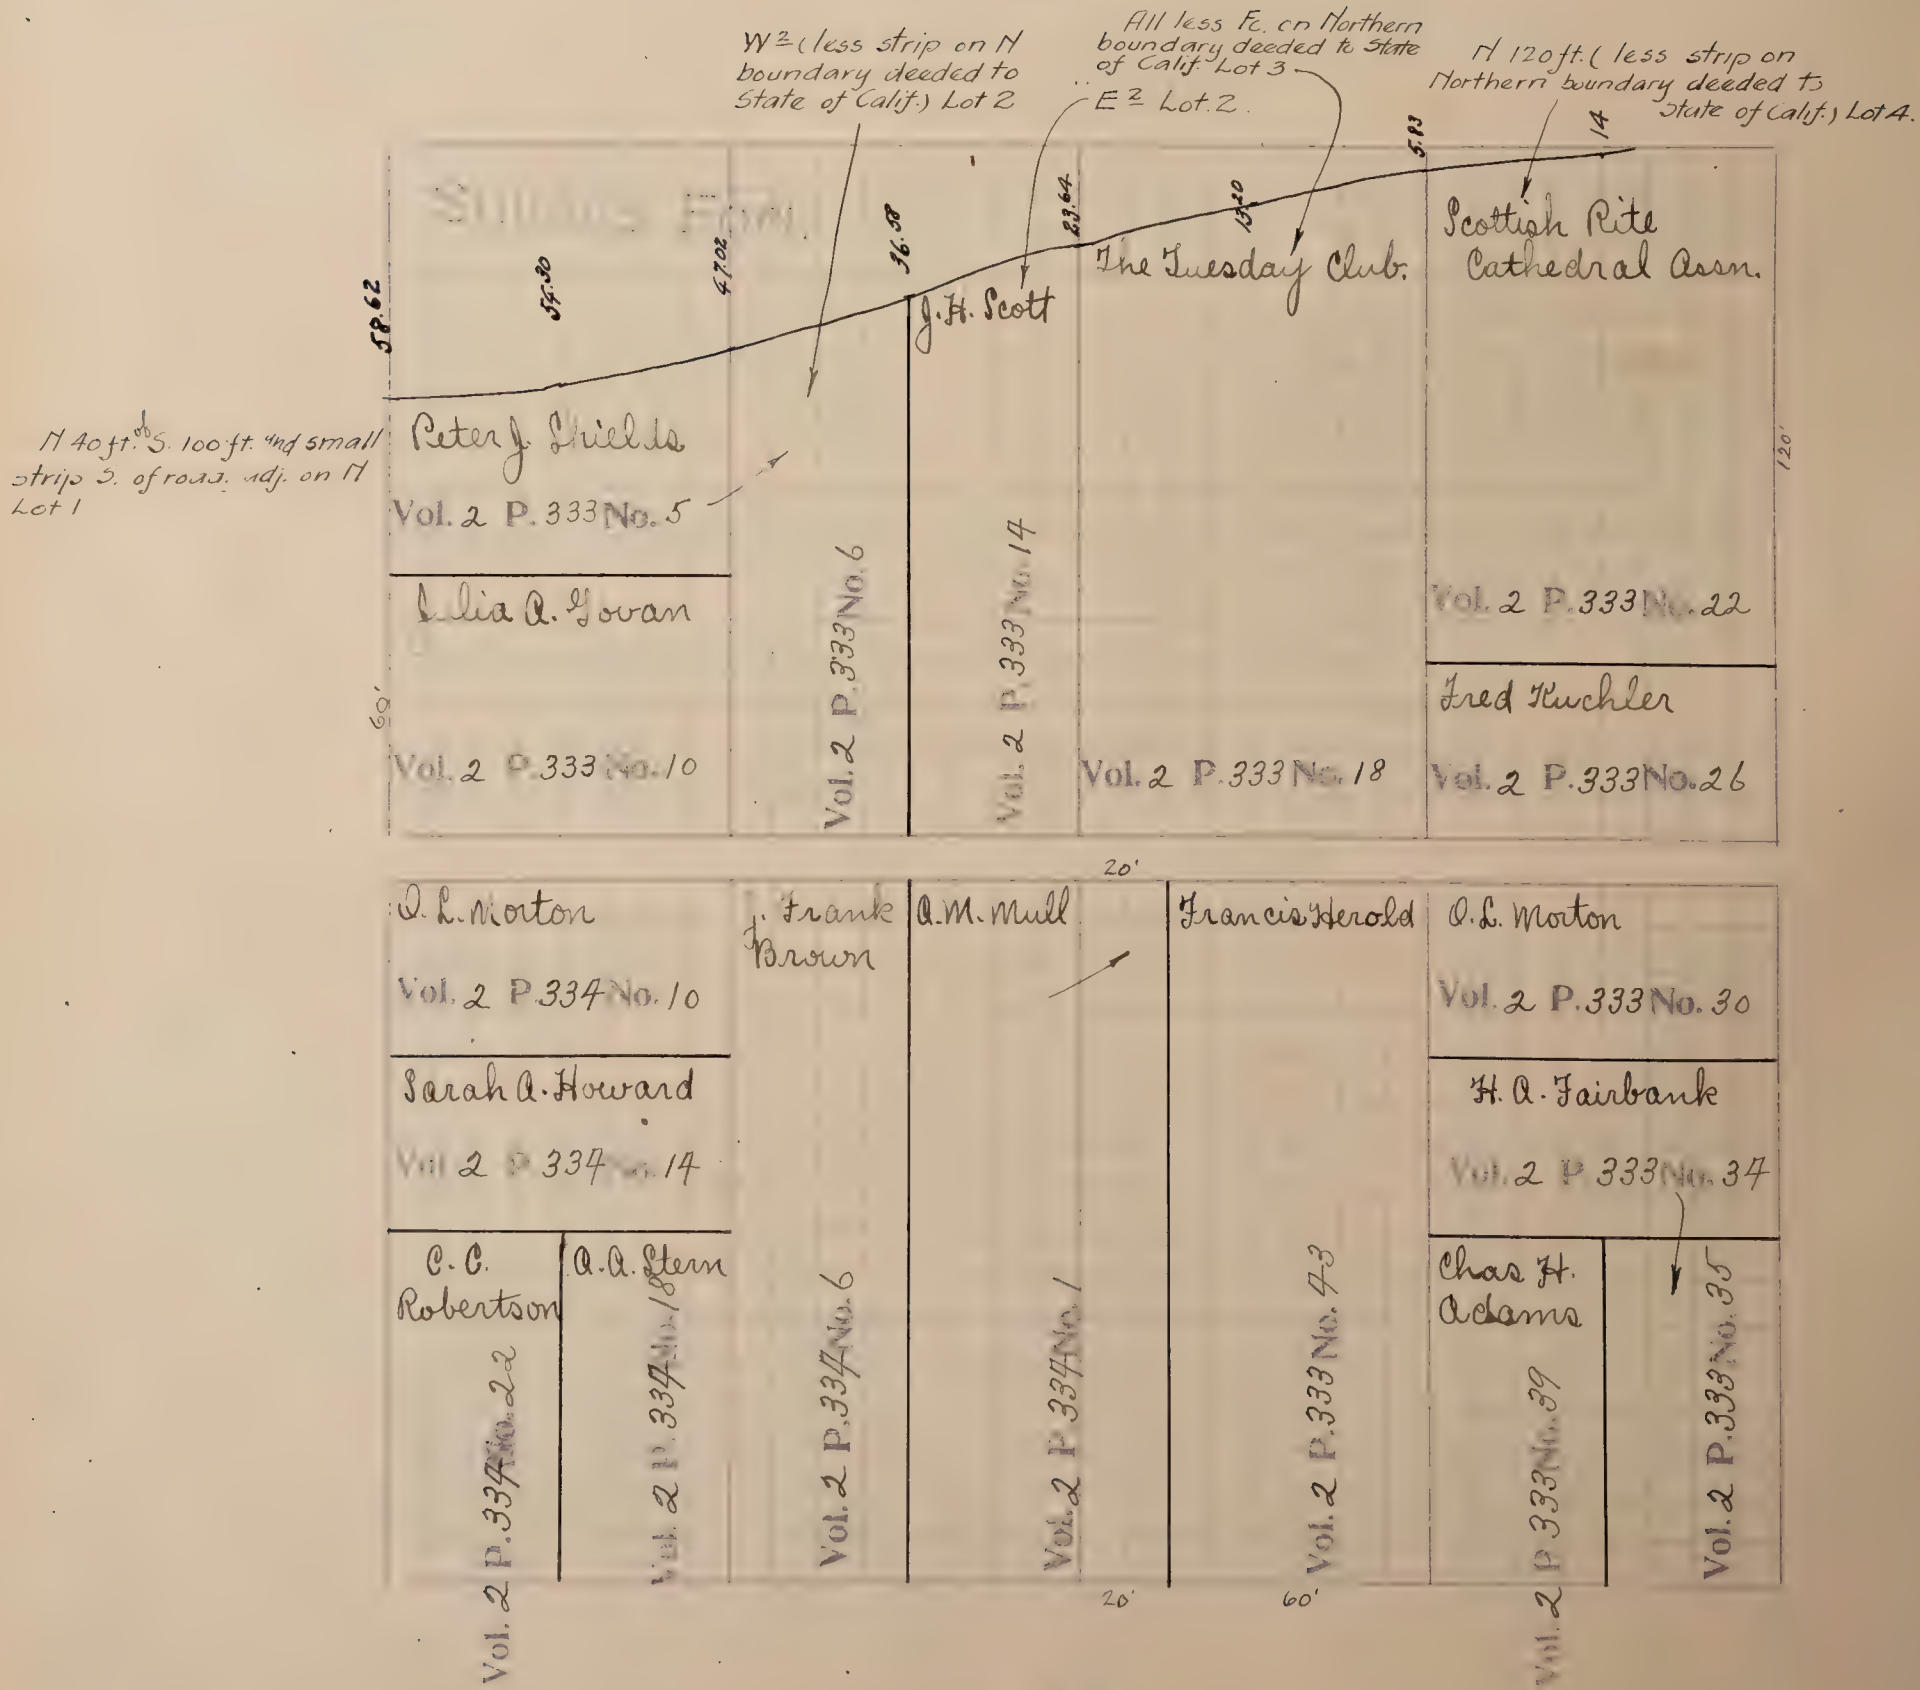 W 2 (less strip on N
boundary deeded to
State of Calif.) Lot 2
All less Fc. on Northern
boundary deeded to State
of Calif. Lot 3
E 2 Lot. 2.
N 120 ft. (less strip on
Northern boundary deeded to
State of Calif.) Lot 4.
58.62
54.30
47.02
36.58
23.64
13.20
5.83
14
N 40 ft. of S. 100 ft. and small
strip S. of road. adj. on N
Lot 1
Peter J. Shields
Vol. 2 P. 333 No. 5
A. Govan
60'
Vol. 2 P. 333 No. 10
Vol. 2 P. 333 No. 6
J. H. Scott
Vol. 2 P. 333 No. 14
The Tuesday Club.
Vol. 2 P. 333 No. 18
Scottish Rite
Cathedral Assn.
120'
Vol. 2 P. 333 No. 22
Fred Kuchler
Vol. 2 P. 333 No. 26
20'
O. L. Morton
Vol. 2 P. 334 No. 10
Sarah A. Howard
Vol. 2 P. 334 No. 14
C. C.
Robertson
Vol. 2 P. 334 No. 22
A. A. Stern
Vol. 2 P. 334 No. 18
Frank
Brown
Vol. 2 P. 334 No. 6
A. M. Mull
Vol. 2 P. 334 No. 1
Francis Herold
Vol. 2 P. 333 No. 43
O. L. Morton
Vol. 2 P. 333 No. 30
H. A. Fairbank
Vol. 2 P. 333 No. 34
Chas H.
Adams
Vol. 2 P. 333 No. 39
Vol. 2 P. 333 No. 35
20'
60'